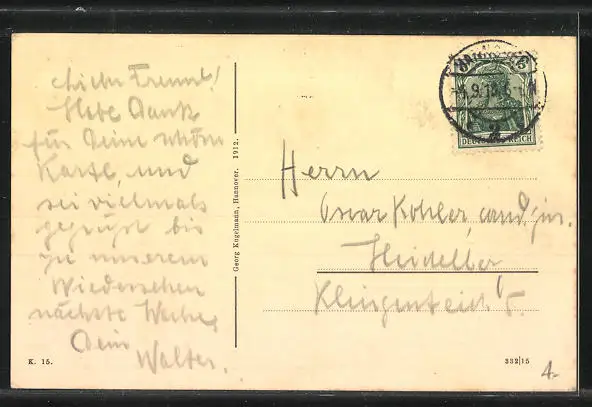 Lieber Freund!
Habe Dank
für Deine schöne
Karte, und
sei vielmals
gegrüßt bis
zu unserem
Wiedersehen
nächste Woche,
Dein
Walter.
Georg Kugelmann, Hannover. 1912.
K. 15.
9.
2
DEUTSCHES REICH
Herrn
Oscar Kohler, cand. jur.
Heidelber
332|15
4-